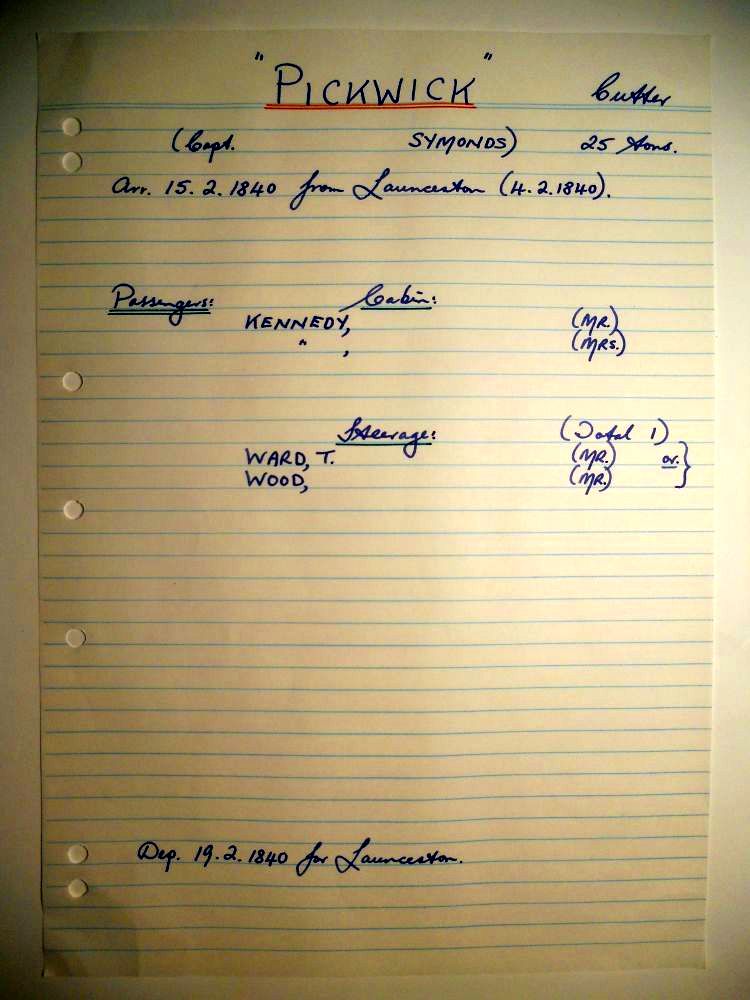 "PICKWICK" Cutter
(Capt. SYMONDS) 25 Tons.
Arr. 15.2.1840 from Launceston (4.2.1840).
Passengers: Cabin:
KENNEDY, (MR.)
" , (MRS.)
Steerage: (Total 1)
WARD, T. (MR.) or. }
WOOD, (MR.)
Dep. 19.2.1840 for Launceston.